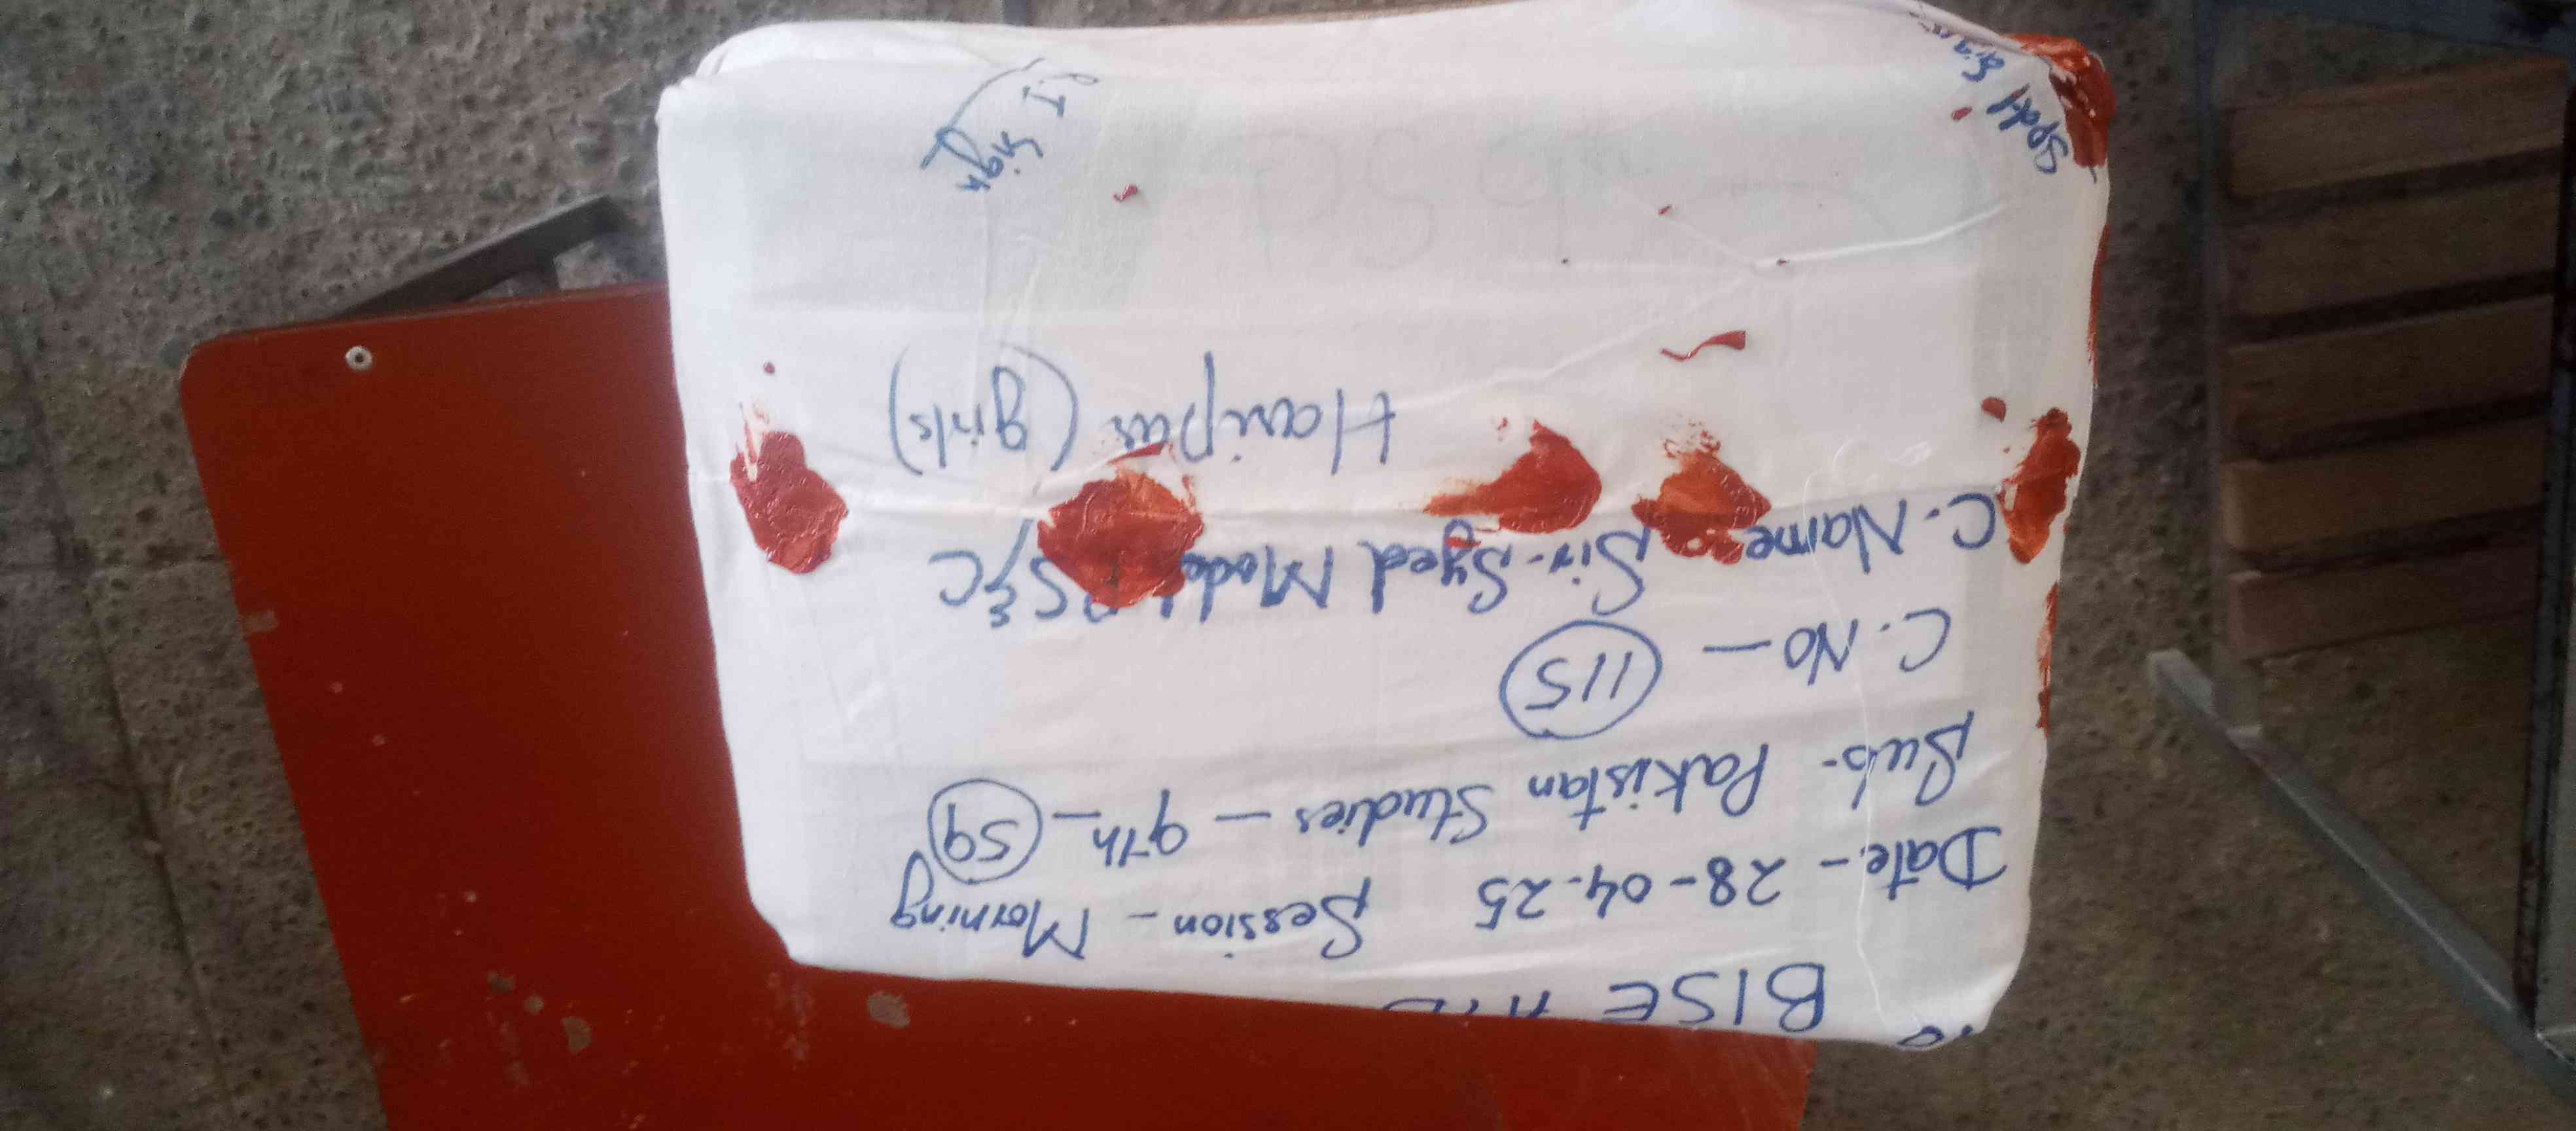 BISE
Date - 28-04-25 Session - Morning
Sub- Pakistan Studies - 9th - 59
C. No - 115
C. Name Sir-Syed Model PS&C
Haripur (girls)
R.I Sign
Spdt Sign